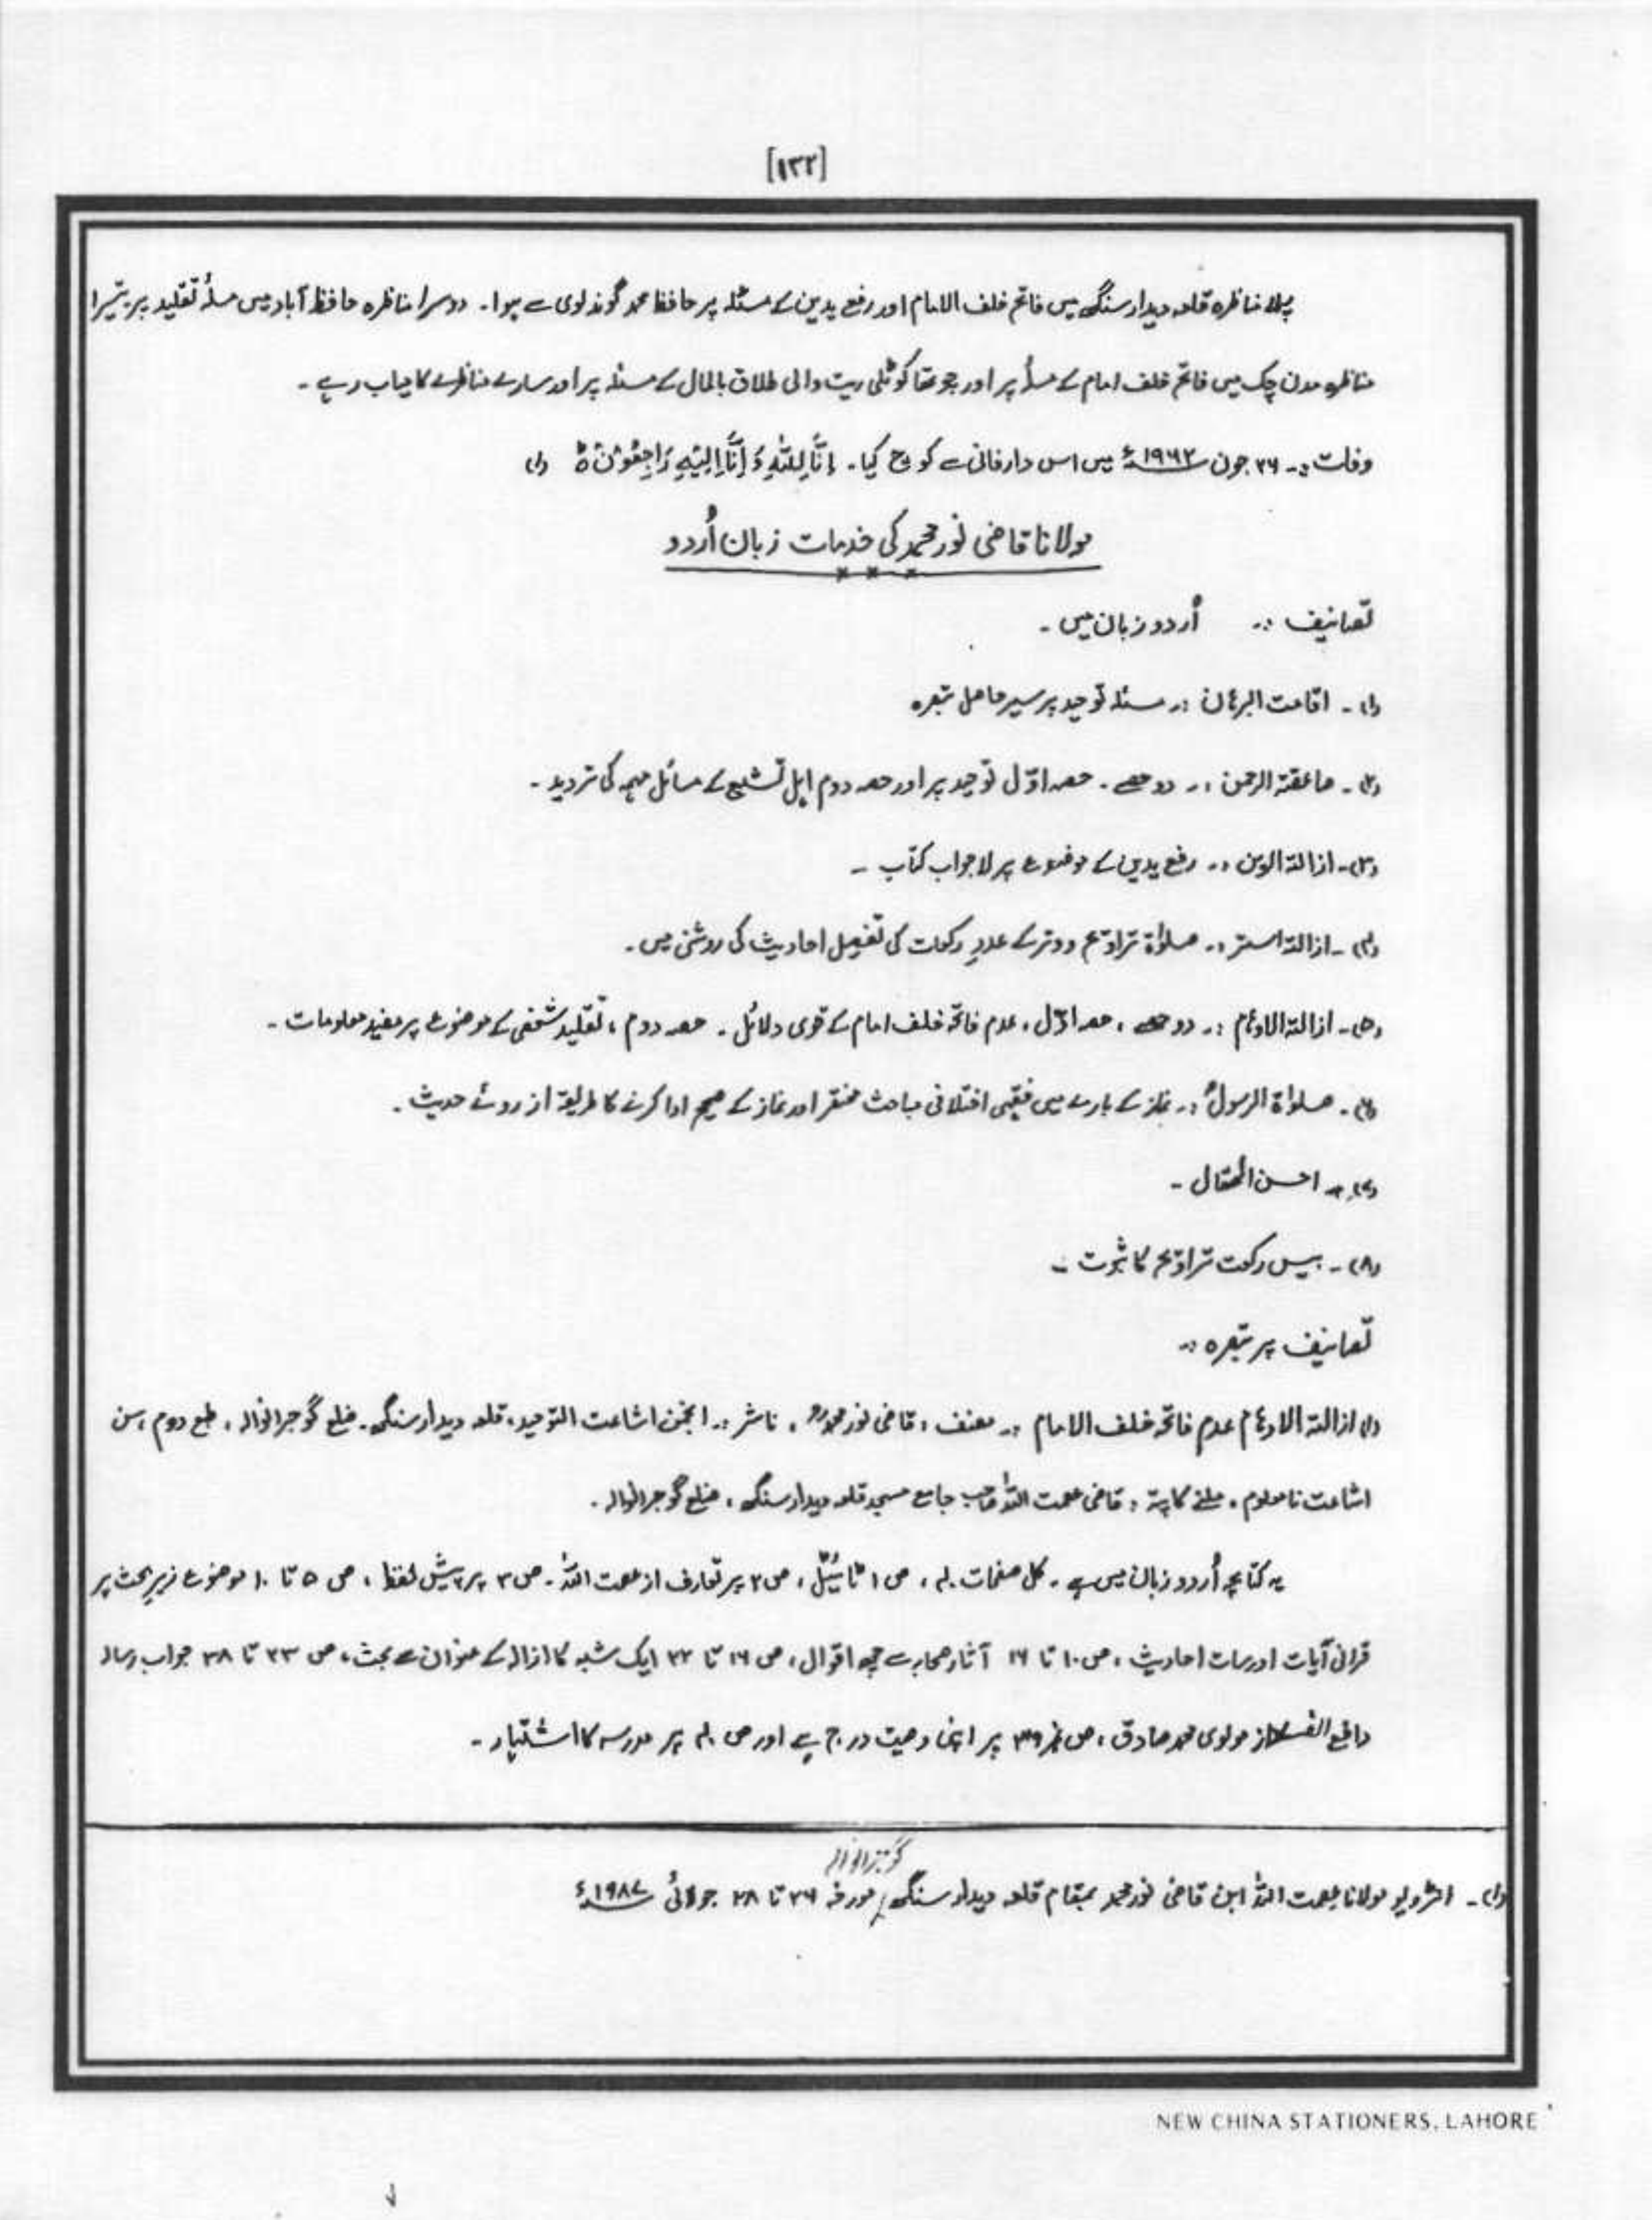 [۱۳۲]
پہلا مناظرہ قلعہ دیدار سنگھ میں فاتحہ خلف الامام اور رفع یدین کے مسئلہ پر حافظ محمد گوندلوی سے ہوا۔ دوسرا مناظرہ حافظ آباد میں مسئلہ تقلید پر تیسرا
مناظرہ مدن چک میں فاتحہ خلف امام کے مسئلہ پر اور چوتھا کوٹلی ریت والی طلاق بالمال کے مسئلہ پر اور سارے مناظرے کامیاب رہے۔
وفات :۔ ۲۶ جون ۱۹۶۲ء میں اس دارفانی سے کوچ کیا۔ اِنَّا لِلّٰہِ وَ اِنَّا اِلَیْہِ رَاجِعُوْنَ ہ (۱)
مولانا قاضی نور محمد کی خدمات زبان اُردو
تصانیف :۔ اُردو زبان میں۔
(۱)۔ اقامت البرہان :۔ مسئلہ توحید پر سیر حاصل تبصرہ
(۲)۔ صاعقتہ الرحمن :۔ دو حصے۔ حصہ اوّل توحید پر اور حصہ دوم اہل تشیع کے مسائل مہمہ کی تردید۔
(۳)۔ ازالتہ الرین :۔ رفع یدین کے موضوع پر لاجواب کتاب۔
(۴)۔ ازالتہ الستر :۔ صلوٰۃ تراویح و وتر کے عددِ رکعات کی تفصیل احادیث کی روشنی میں۔
(۵)۔ ازالتہ الاوہام :۔ دو حصے، حصہ اوّل، عدم فاتحہ خلف امام کے قوی دلائل۔ حصہ دوم، تقلید شخصی کے موضوع پر مفید معلومات۔
(۶)۔ صلواۃ الرسولؐ :۔ نماز کے بارے میں فقہی اختلافی مباحث مختصر اور نماز کے صحیح ادا کرنے کا طریقہ از روئے حدیث۔
(۷)۔ احسن المقال۔
(۸)۔ بیس رکعت تراویح کا ثبوت۔
تصانیف پر تبصرہ :۔
(۱) ازالتہ الاوہام عدم فاتحہ خلف الامام :۔ مصنف : قاضی نور محمدؒ، ناشر :۔ انجمن اشاعت التوحید، قلعہ دیدار سنگھ۔ ضلع گوجرانوالہ، طبع دوم، سن
اشاعت نامعلوم، ملنے کا پتہ : قاضی عصمت اللہ صاحب جامع مسجد قلعہ دیدار سنگھ، ضلع گوجرانوالہ۔
یہ کتابچہ اُردو زبان میں ہے۔ کل صفحات ۴۰، ص ۱ ٹائیٹل، ص ۲ پر تعارف از عصمت اللہ۔ ص ۳ پر پیش لفظ، ص ۵ تا ۱۰ موضوع زیرِ بحث پر
قرانی آیات اور سات احادیث، ص ۱۰ تا ۱۶ آثار صحابہ سے چھ اقوال، ص ۱۶ تا ۲۲ ایک شبہ کا ازالہ کے عنوان سے بحث، ص ۲۳ تا ۳۸ جواب رسالہ
دافع از مولوی محمد صادق، ص نمبر ۳۹ پر اپنی وصیت درج ہے اور ص ۴۰ پر مدرسہ کا اشتہار۔
گوجرانوالہ
(۱)۔ انٹرویو مولانا عصمت اللہ ابن قاضی نور محمد بمقام قلعہ دیدار سنگھ / مورخہ ۲۶ تا ۲۸ جولائی ۱۹۸۷ء
NEW CHINA STATIONERS, LAHORE